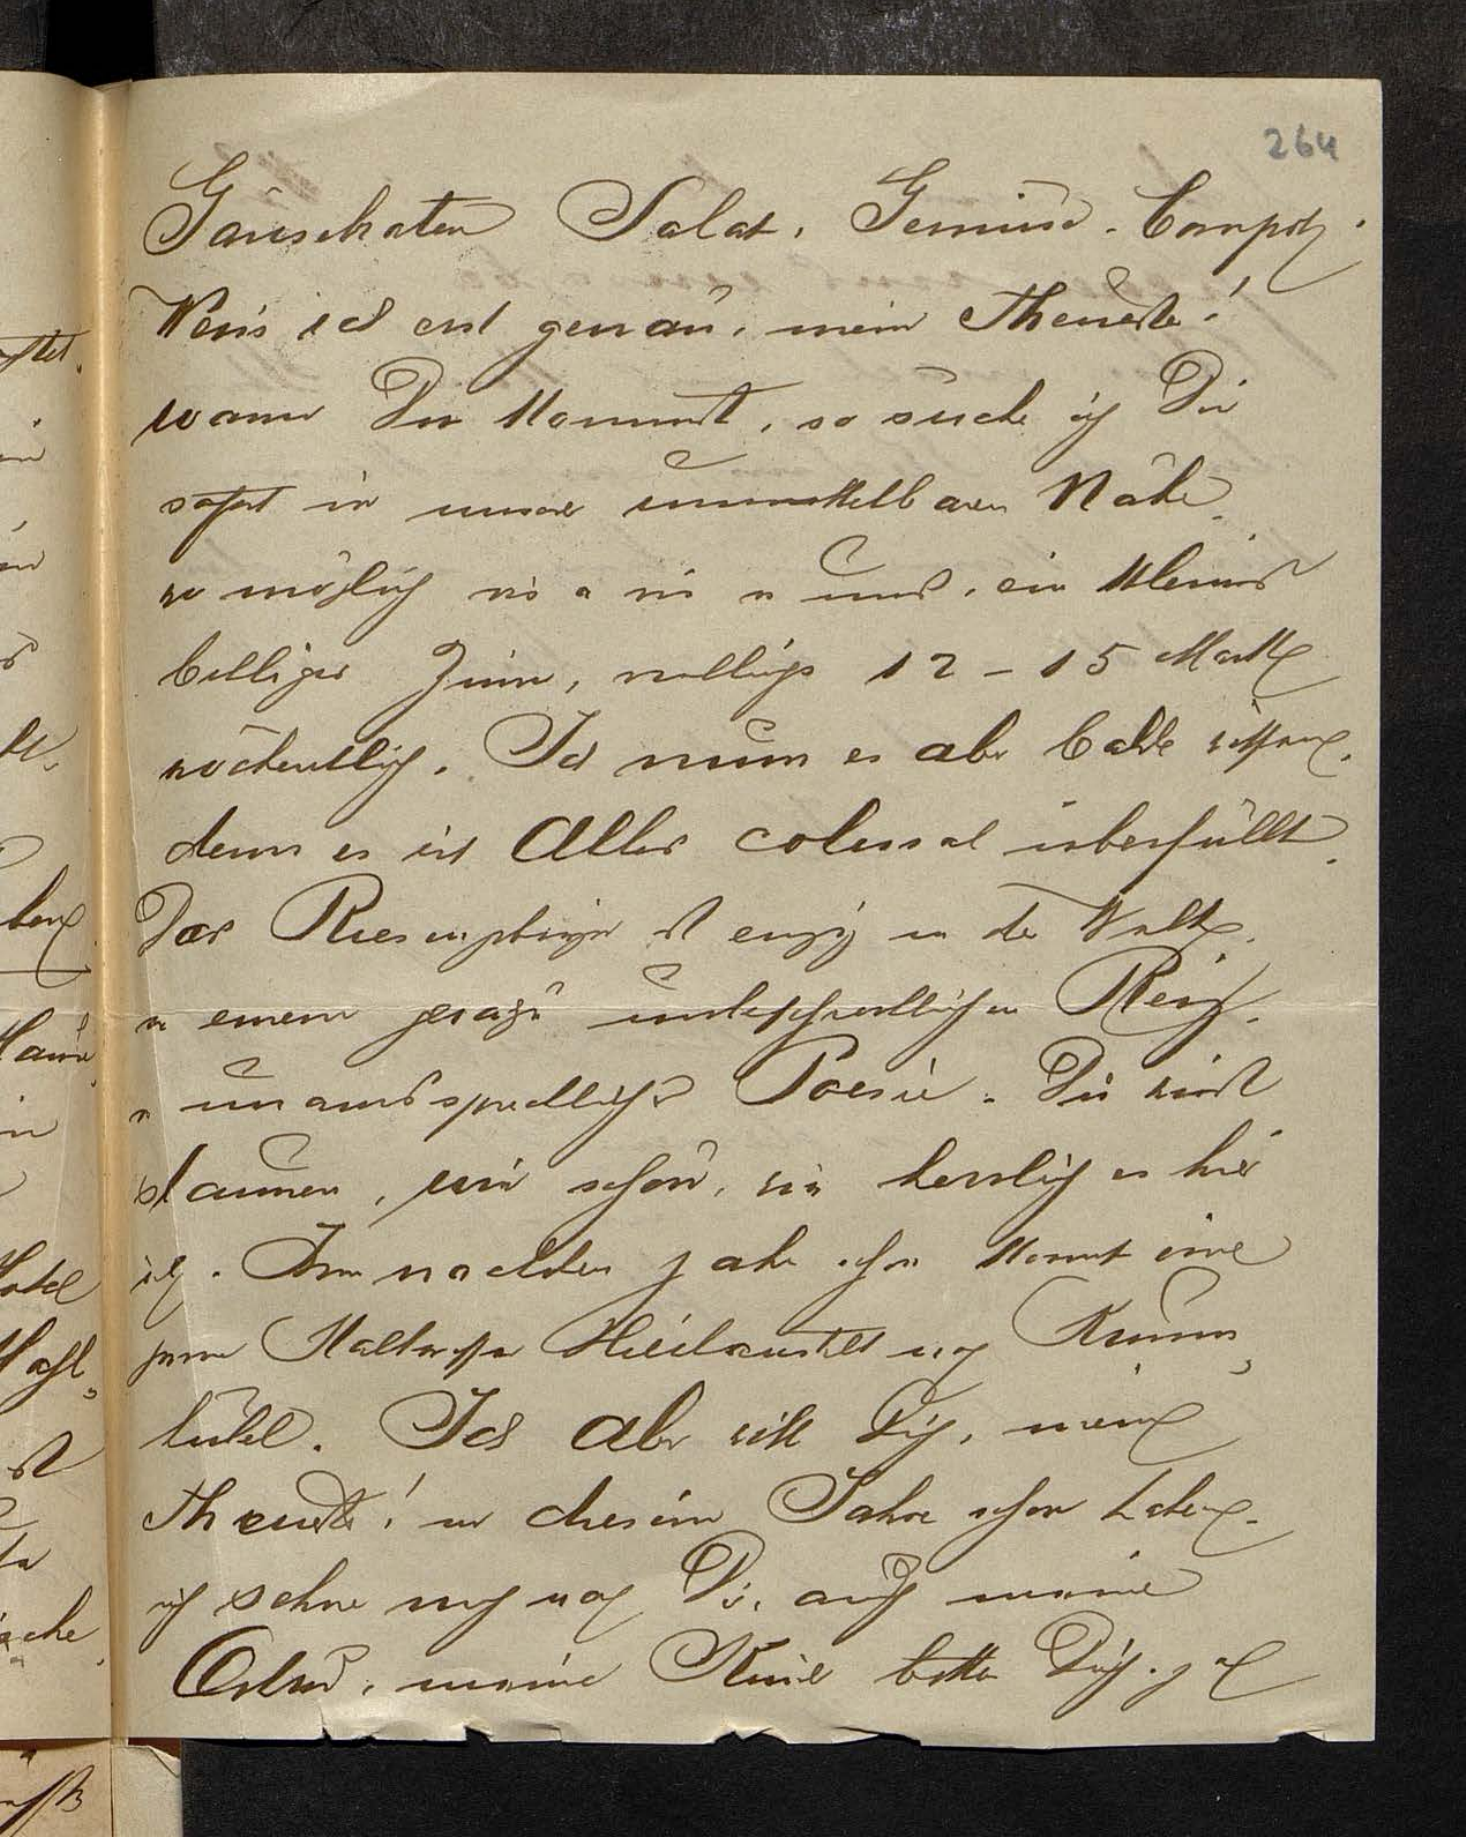 264
Gänsebraten Salat, Gemüse, Compot.
Weis ich erst genau, mein Theuerste!
wann Du kommst, so suche ich Dir
sofort in unserer unmittelbaren Nähe,
wo möglich vis a vis v uns, ein kleines
billiges Zimm,         12 - 15 Mark
wöchentlich. Ich muss es aber balde
denn es ist Alles colossal überfüllt.
Das Riesengebirge ist einzig in der Welt,
v einem geradezu unbeschreiblichen Reiz,
v unaussprechlicher Poesie. Du wirst
staunen, wie schön, wie herrlich es hier
ist. Im nächsten Jahr schon kommt eine
             Heilanstalt nach Krumm-
hübel. Ich aber will Dich, meine
Theuerste! in diesem Jahre schon haben,
ich sehne mich nach Dir, auch meine
        , meine Kinder bitten Dich,